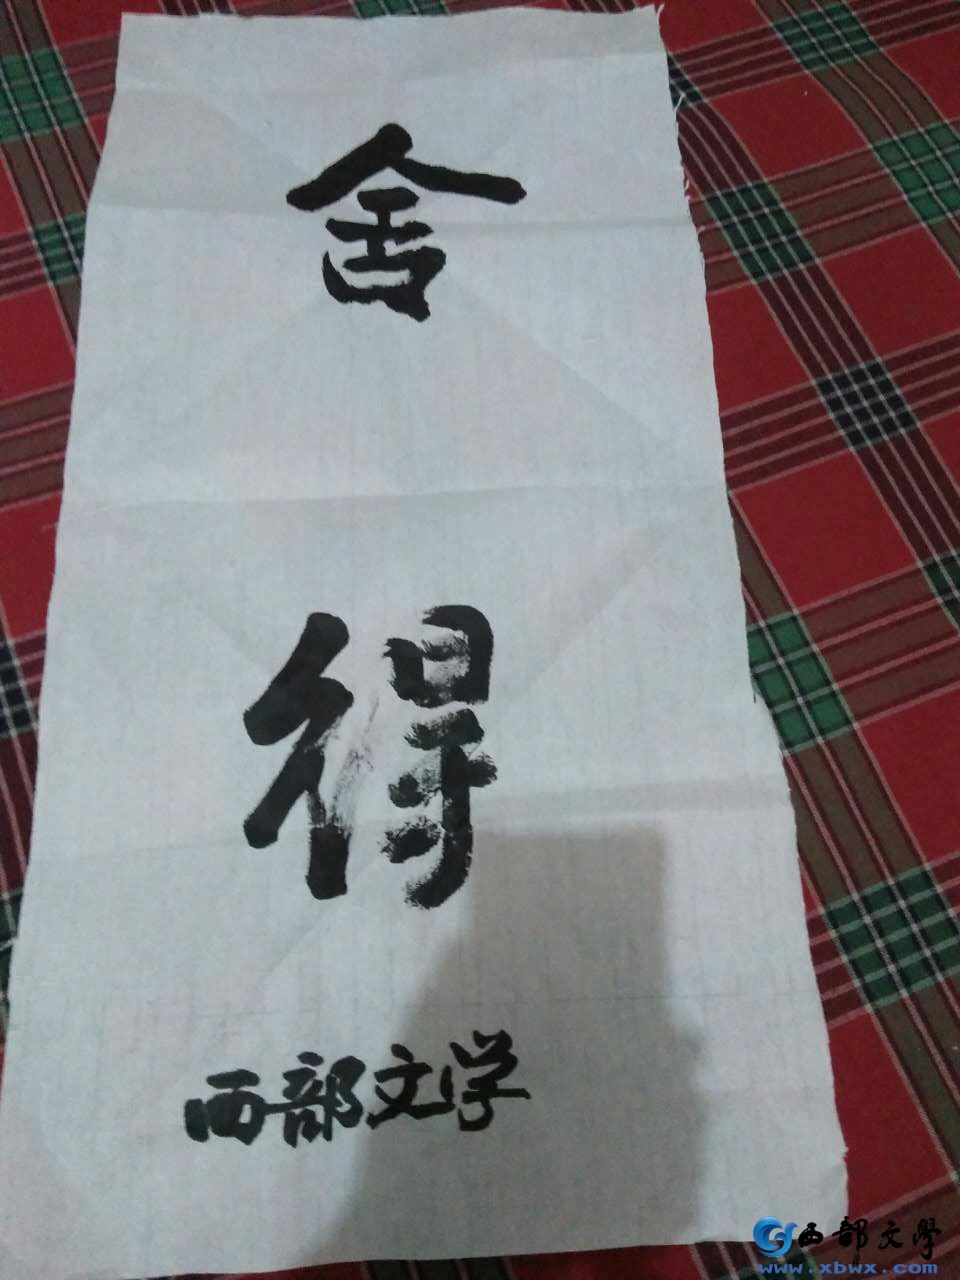 舍
得
西部文学
西部文學
www.xbwx.com